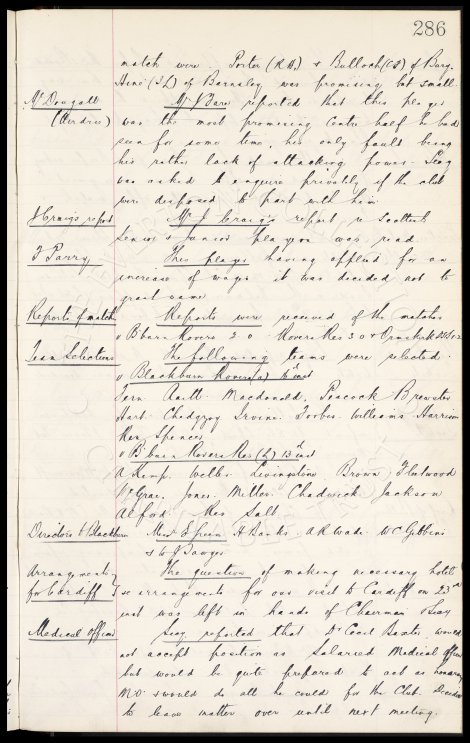 286
match were Porter (R.H.) & Bulloch (C.F.) of Bury.
Hine (I.L.) of Barnsley was promising but small.
McDougall
(Airdrie)
Mr J Bare reported that this player
was the most promising Centre half he had
seen for some time, his only fault being
his rather lack of attacking power. Secy
was asked to enquire privately if the club
were disposed to part with him
J Craig's report
Mr J Craig's report re Scottish
Senior & Junior players was read
F Parry
This player having applied for an
increase of wages it was decided not to
grant same
Reports of matches
Reports were received of the matches
v B'burn Rovers 2 0 Rovers Res 3 0 & Ormskirk
Team Selections
The following teams were selected
v Blackburn Rovers inst
Fern Scott Macdonald, Peacock Brewster
Hart Chedgzoy Irvine Forbes Williams Harrison
Res Spencer
v B'burn Rovers Res (L) 13th inst
A Kemp Weller Livingstone Brown Fleetwood
McGrae Jones Miller Chadwick Jackson
Alford Res Salt
Directors to Blackburn
Messrs E Green H Banks A R Wade W C Gibbins
& W J Sawyer
Arrangements
for Cardiff
The question of making necessary hotel
&c arrangements for our visit to Cardiff on 23rd
inst was left in hands of Chairman & Secy
Medical Officer
Secy reported that Dr Cecil Baxter would
not accept position as Salaried Medical Officer
but would be quite prepared to act as honorary
M.O. & would do all he could for the Club. Decided
to leave matter over until next meeting.